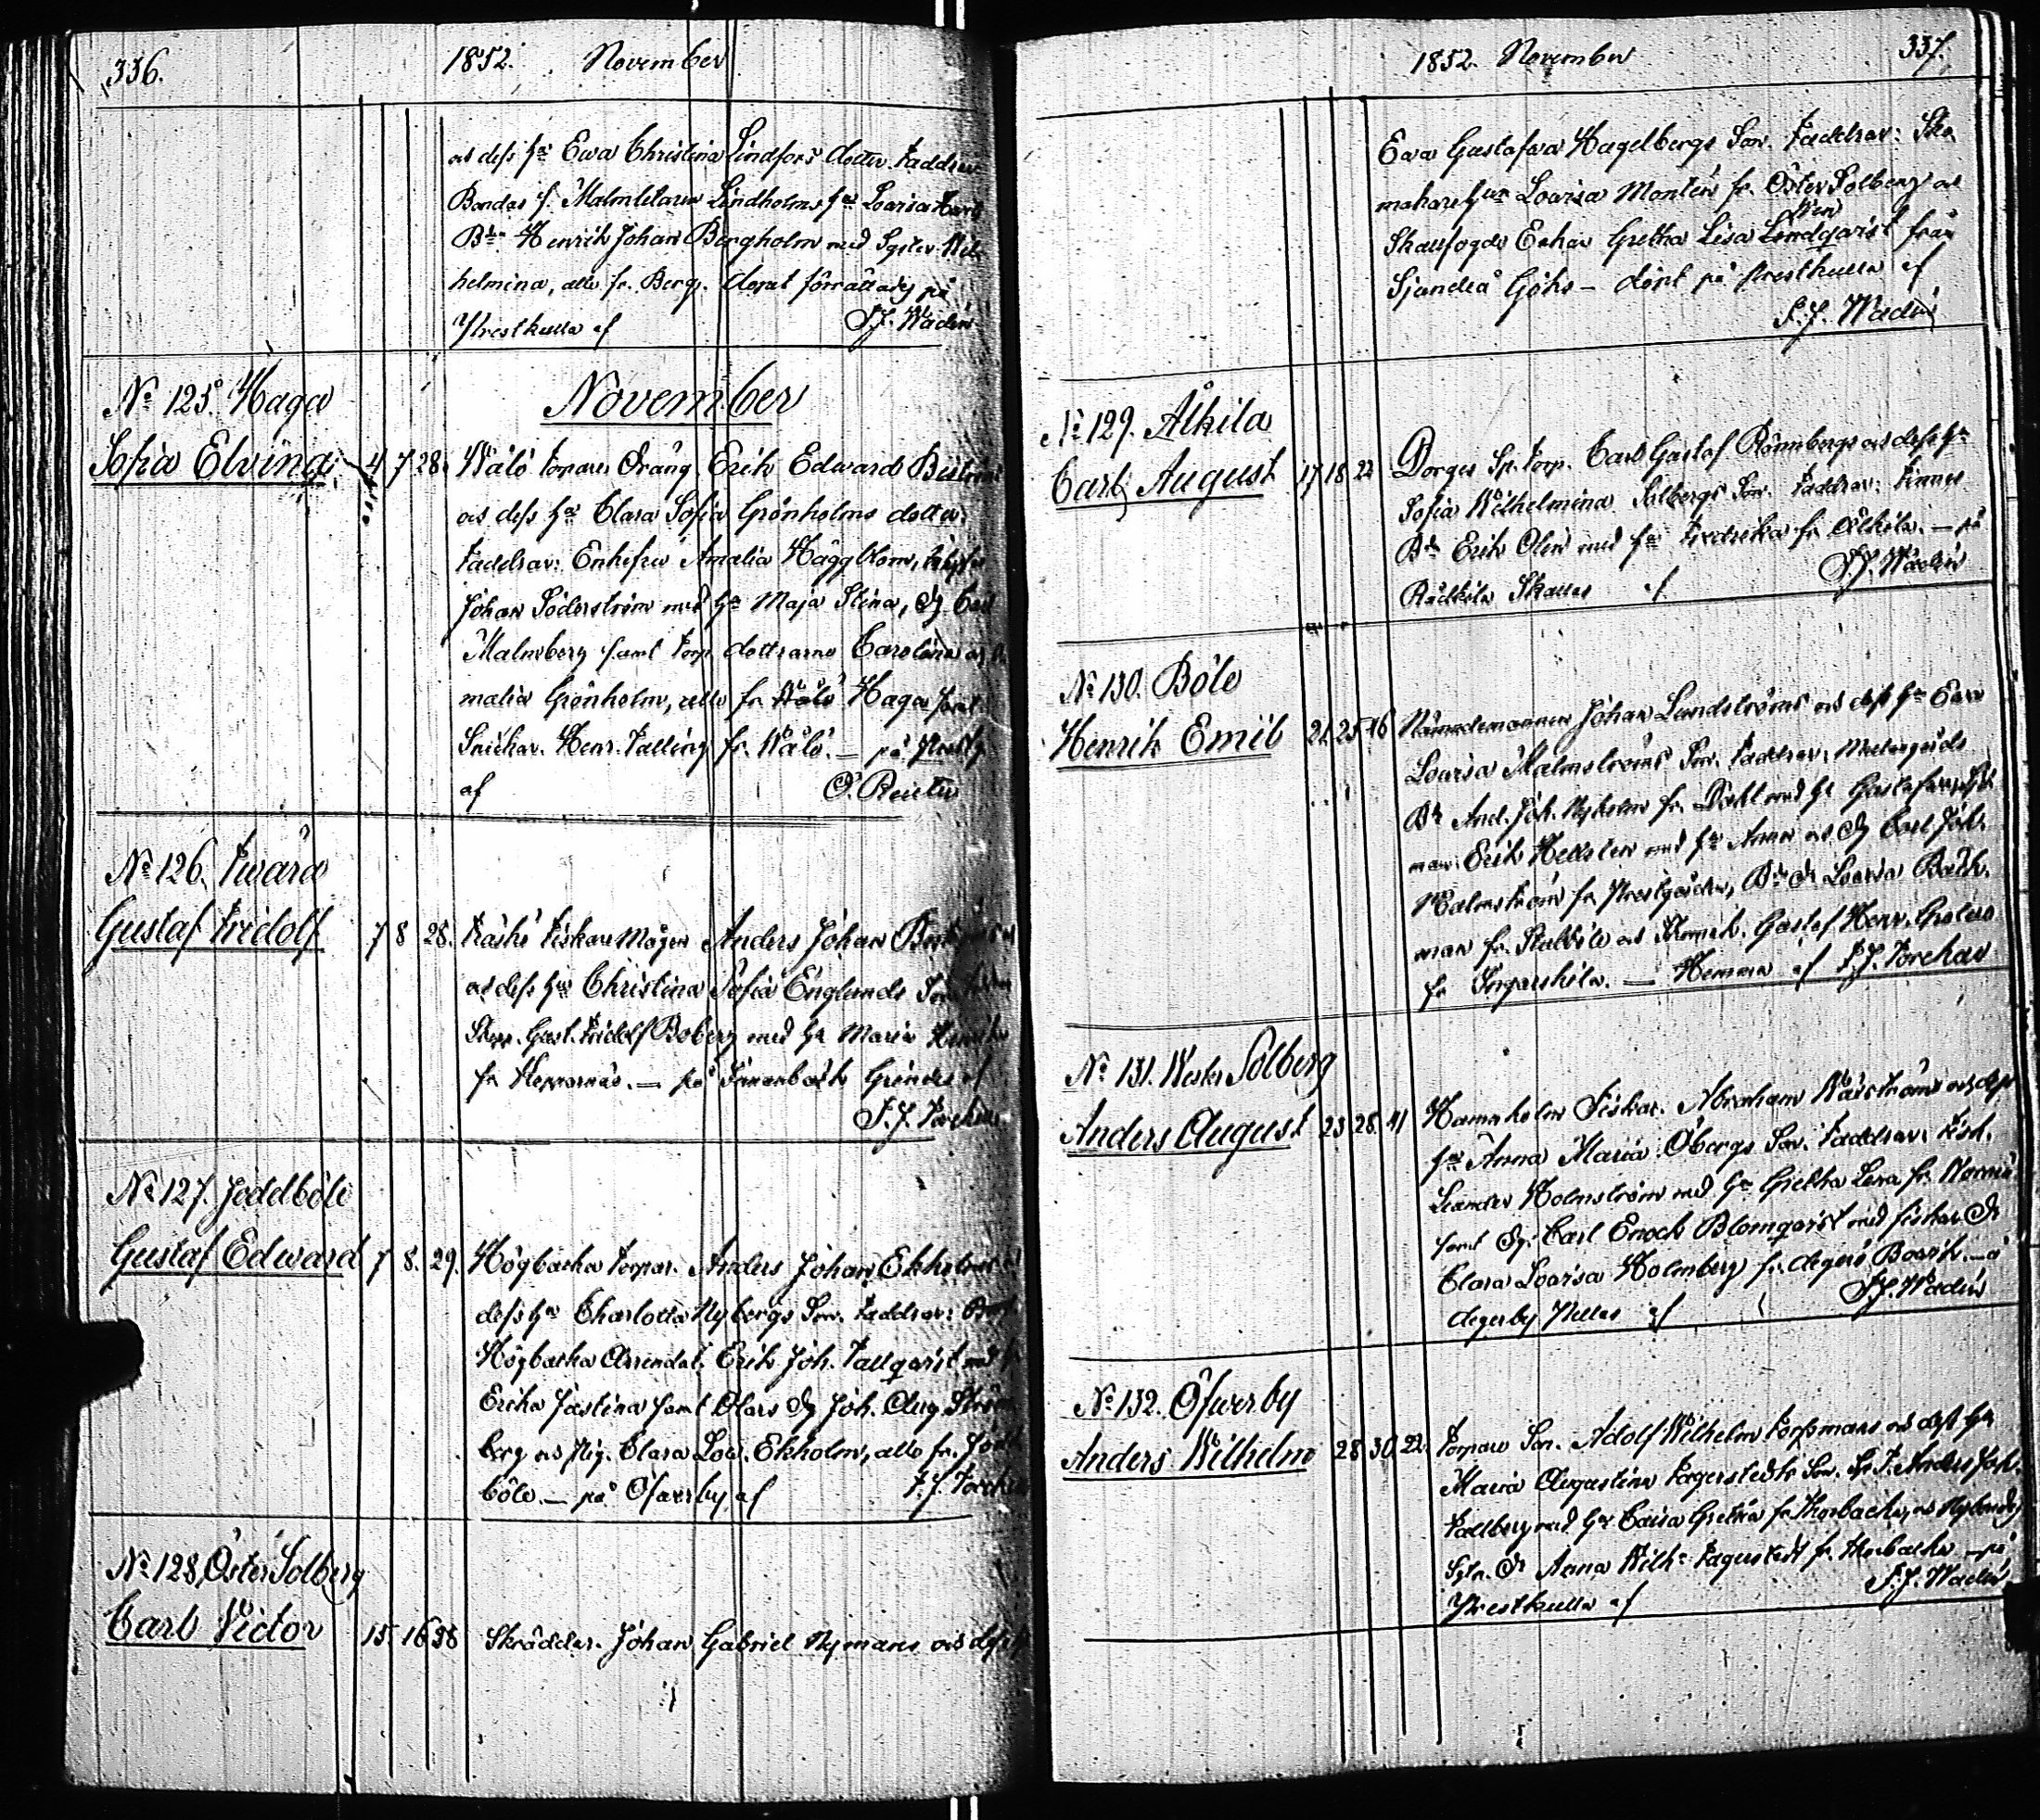 336. 1852. November
och dess hu Ewa Christina Lindfors dotter. Faddrar
Bondas f. Malmletaren Lindholms hu Lovisa
Bde Henrik Johan Bergholm med Syster Wil-
helmina, alla fr. Berg. Dopet förrättades på
Prestkulla af F.J. Wadén
No 125. Haga November
Sofia Elvina 4 7 28. Wålö Torpares Dräng Erik Edward
och dess hu Clara Sofia Grönholms dotter.
Faddrar: Enkefru Amalia Häggblom,
Johan Söderström med hu Maja Stina, Dg. Carl
Malmberg samt Torp. döttrarne Carolina och A-
malia Grönholm, alla fr. Haga samt
Snickar. Henr. Falling fr. Wålö. — på
af O. Reuter
No 126. Twärö
Gustaf Fridolf 7 8 28. Fiskare Mågen Anders Johan
och dess hu Christina Sofia Englunds Son
Skepp. Gust. Fridolf Boberg med hu Maria
fr. — på Grindes af
F.J. Forchun
No 127. Jeddböle
Gustaf Edward 7 8. 29. Högbacka Torpar. Anders Johan Ekholms
dess hu Charlotta Nybergs Son. Faddrar:
Högbacka Arrendat. Erik Joh. Tallqvist med
Erika Justina samt Olars Dg Joh. Aug. Ström-
berg och Pig. Clara Lov. Ekholm, alla fr. Jedd-
böle. — på Öfwerby, af F.J.
No 128, Öster Solberg
Carl Victor 15. 16 38 Skräddar. Johan Gabriel Nymans och dess
1852. November 337.
Eva Gustafva Hagelbergs Son. Faddrar: Sko-
makareh:un Lovisa Montén fr. Öster Solberg och
Skallfogde Enkan Gretha Lisa Lindqvist från
Sjundeå Göhs — döpt på Prestkulla af
F.J. Wadén
No 129. Ålkila
Carl August 17 18 22 Dorges Sp. Torp. Carl Gustaf Rönnbergs och dess hu
Sofia Wilhelmina Solbergs Son. Faddrar: Finnes
Bde Erik Olin med hu Fredrika fr. Ålkila. — på
Rädkila Skallas af F.J. Wadén
No 130. Böle
Henrik Emil 21 25 46 Nämndemannen Johan Lundströms och dess hu Ewa
Lovisa Malmströms Son. Faddrar: Mellangårds
Bde And. Joh. Nyholm fr. Dahl med hu Gustafva,
man. Erik Hellsten med hu Anna och Dg Carl Joh.
Malmström fr. Prestgården, Bde Dr Lovisa Bäck-
man fr. och Gustaf Henr.
fr. Ingarskila. — Hemma af F.J.
No 131. Wester Solberg
Anders August 23 28. 41 Hamnholm Fiskar. Abraham Wäströms och dess
hu Anna Maria Öbergs Son. Faddrar: Fisk.
Leander Holmström med hu Gretha Lena fr.
samt Dg. Carl Enoch Blomqvist med fiskar Dr
Clara Lovisa Holmberg fr. Degerö — å
Degerby Nillas af F.J. Wadén
No 132. Öfwerby
Anders Wilhelm 28 30 22. Torpare Son. Adolf Wilhelm Forssmans och dess hu
Maria Augustina Fagerstedts Son. Sp. T. Anders Joh.
Tallberg med hu Caisa Gretha fr. Thorbacka, och Nylands
Sytn. Dr Anna Wilh:a Fagerstedt fr. Thorbacka — på
Prestkulla af F.J. Wadén